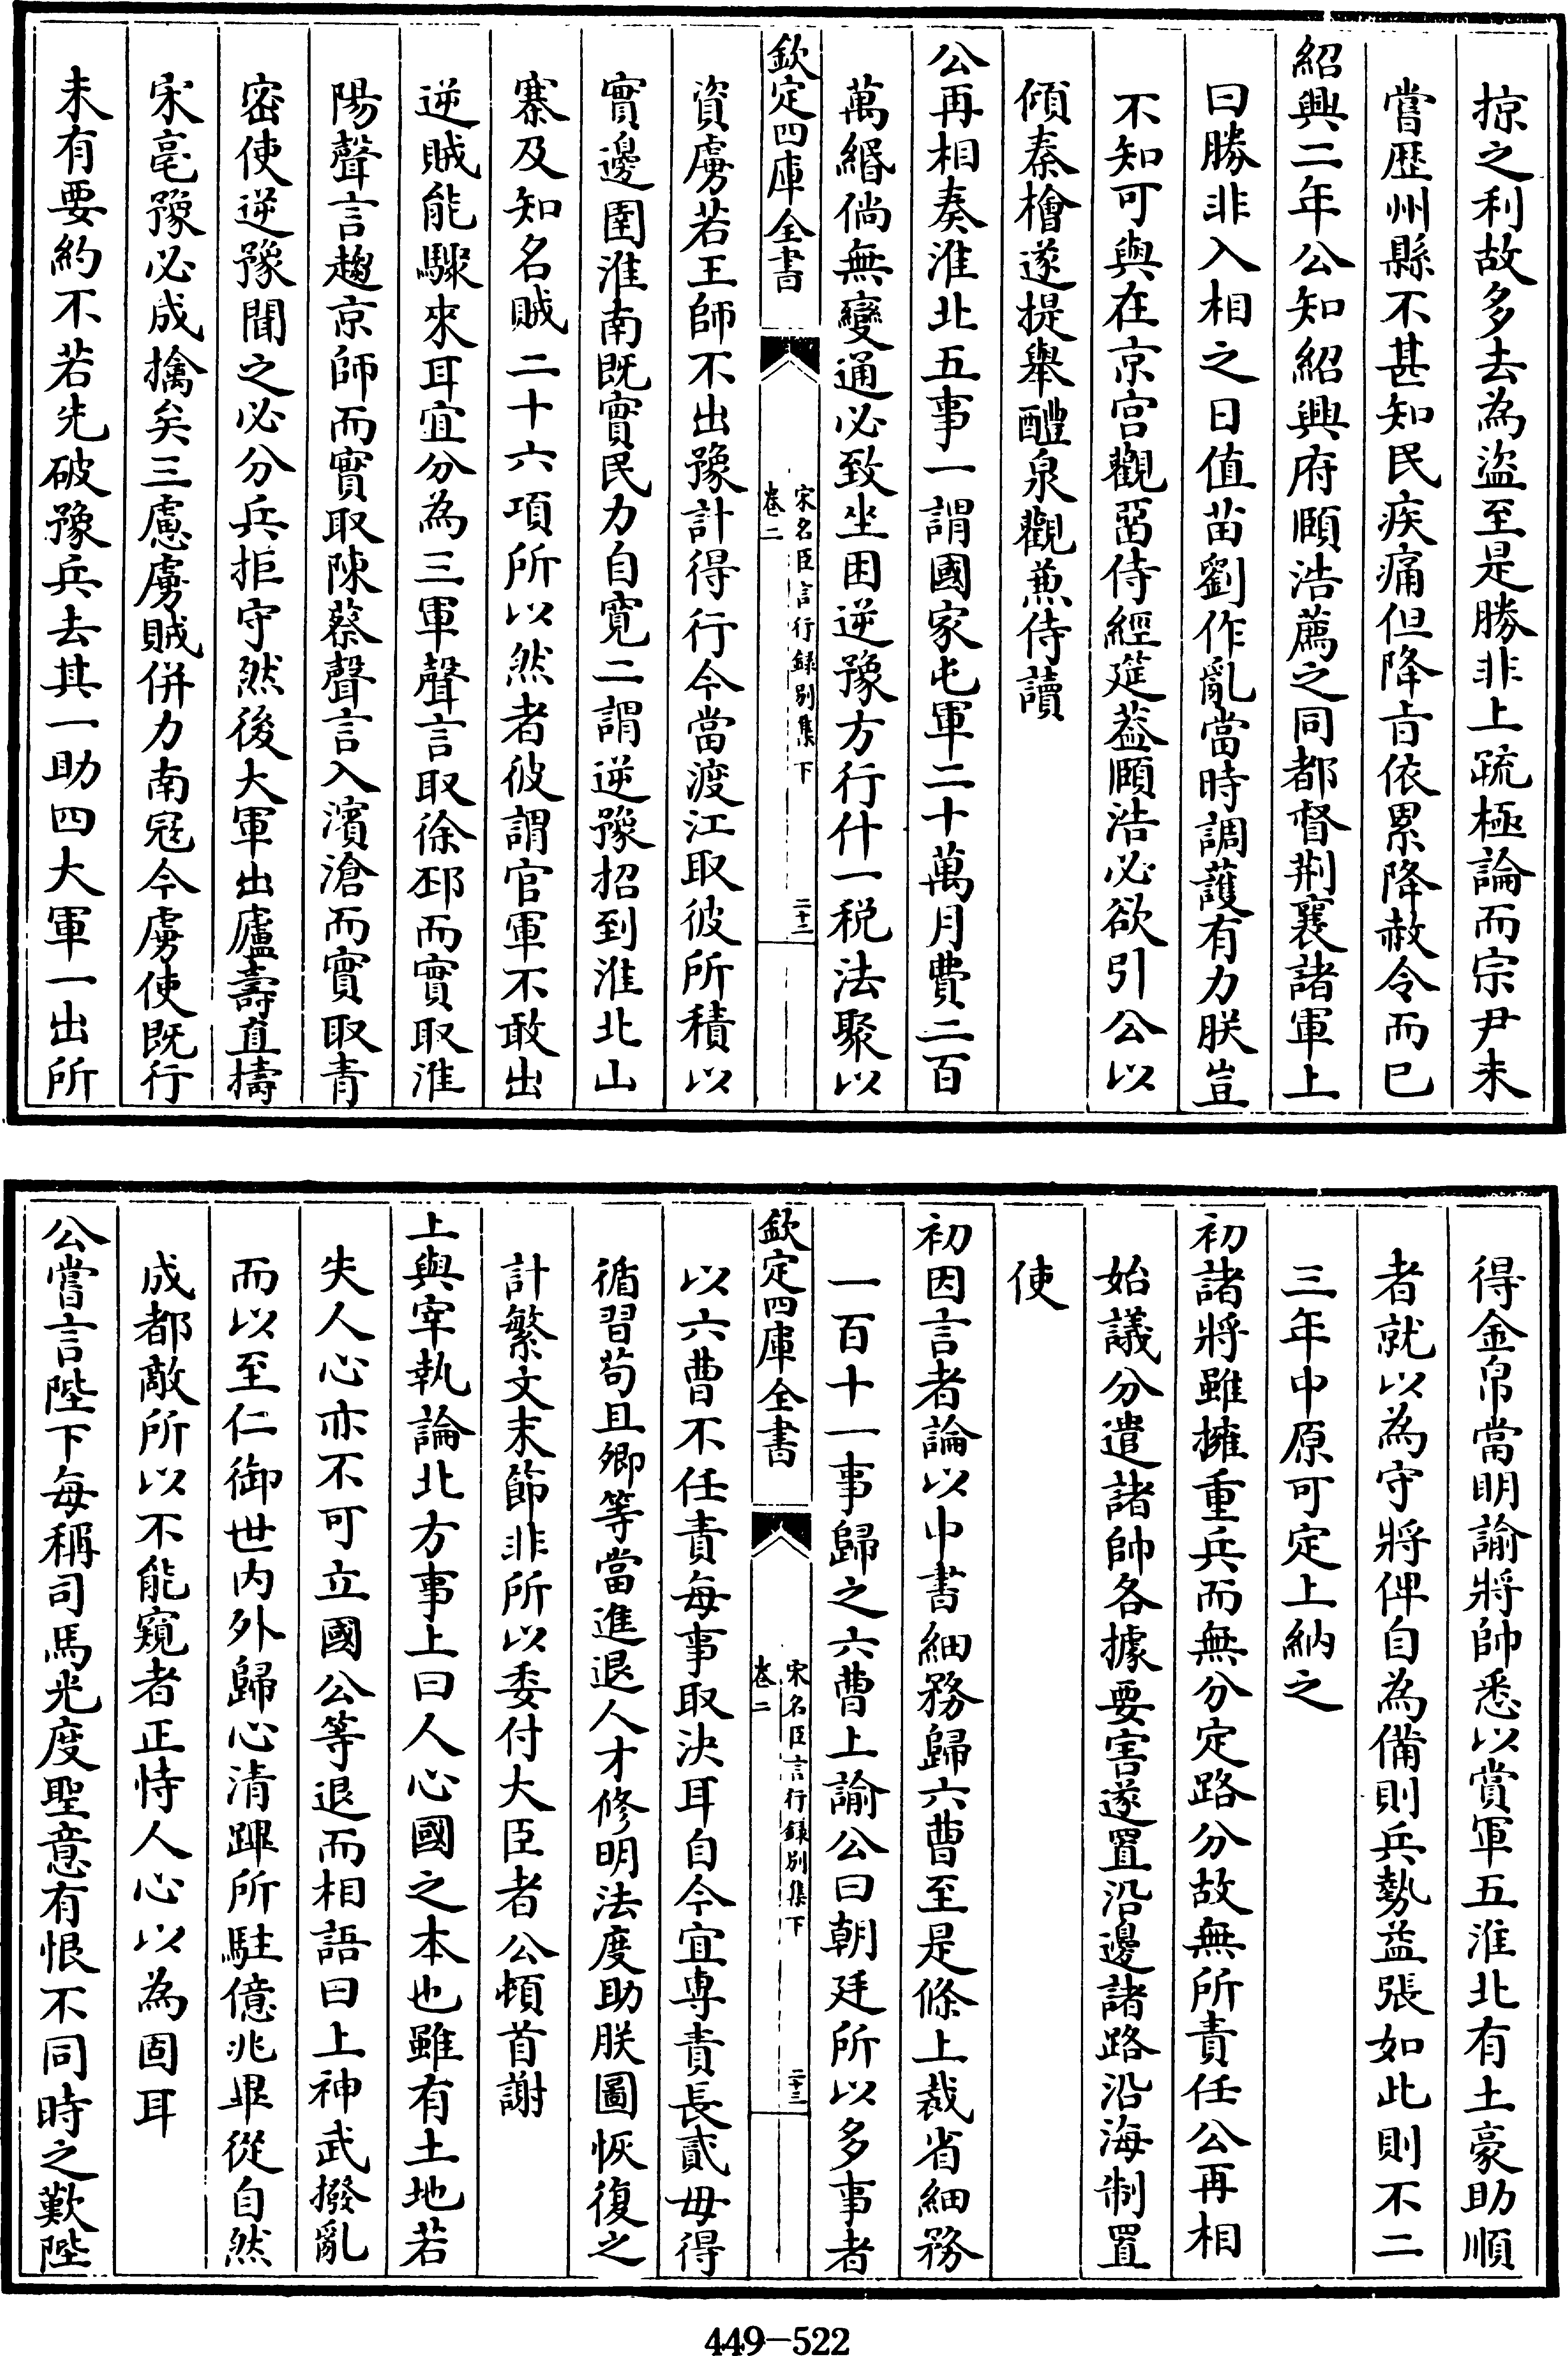 掠之利故多去為盜至是勝非上疏極論而宗尹未
嘗歴州縣不甚知民疾痛但降㫖依累降赦令而已
紹興二年公知紹興府頤浩薦之同都督荆襄諸軍上
曰勝非入相之日值苗劉作亂當時調䕶有力朕豈
不知可與在京宫觀畱侍經筵葢頤浩必欲引公以
傾秦檜遂提舉醴泉觀兼侍讀
公再相奏淮北五事一謂國家屯軍二十萬月費二百
萬緡倘無變通必致坐困逆豫方行什一税法聚以
欽定四庫全書
宋名臣言行録别集下
卷二
二十三
資虜若王師不出豫計得行今當渡江取彼所積以
實邊圉淮南既實民力自寛二謂逆豫招到淮北山
寨及知名賊二十六項所以然者彼謂官軍不敢出
逆賊能驟來耳宜分為三軍聲言取徐邳而實取淮
陽聲言趨京師而實取陳蔡聲言入濱滄而實取青
密使逆豫聞之必分兵拒守然後大軍出廬壽直擣
宋亳豫必成擒矣三慮虜賊併力南冦今虜使既行
未有要約不若先破豫兵去其一助四大軍一出所
得金帛當明諭將帥悉以賞軍五淮北有土豪助順
者就以為守將俾自為備則兵勢益張如此則不二
三年中原可定上納之
初諸將雖擁重兵而無分定路分故無所責任公再相
始議分遣諸帥各據要害遂置沿邊諸路沿海制置
使
初因言者論以中書細務歸六曹至是條上裁省細務
一百十一事歸之六曹上諭公曰朝廷所以多事者
欽定四庫全書
宋名臣言行録别集下
卷二
二十三
以六曹不任責每事取決耳自今宜専責長貳毋得
循習苟且卿等當進退人才修明法度助朕圖恢復之
計繁文末節非所以委付大臣者公頓首謝
上與宰執論北方事上曰人心國之本也雖有土地若
失人心亦不可立國公等退而相語曰上神武撥亂
而以至仁御世内外歸心清蹕所駐億兆畢從自然
成都敵所以不能窺者正恃人心以為固耳
公嘗言陛下每稱司馬光度聖意有恨不同時之歎陛
449-522